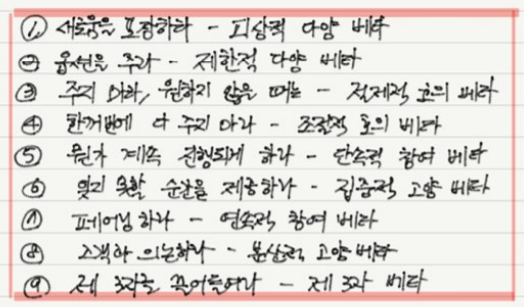 ① 새로움을 포장하라 - 피상적 다양 베타
② 옵션을 주라 - 제한적 다양 베타
③ 주지 마라, 원하지 않을 때는 - 절제적 호의 베타
④ 한꺼번에 다 주지 마라 - 조절적 호의 베타
⑤ 뭔가 계속 진행되게 하라 - 단속적 참여 베타
⑥ 잊지 못할 순간을 제공하라 - 집중적 고양 베타
⑦ 페어닝하라 - 연속적 참여 베타
⑧ 고객과 의논하라 - 분산적 고양 베타
⑨ 제 3자를 끌어들여라 - 제 3자 베타